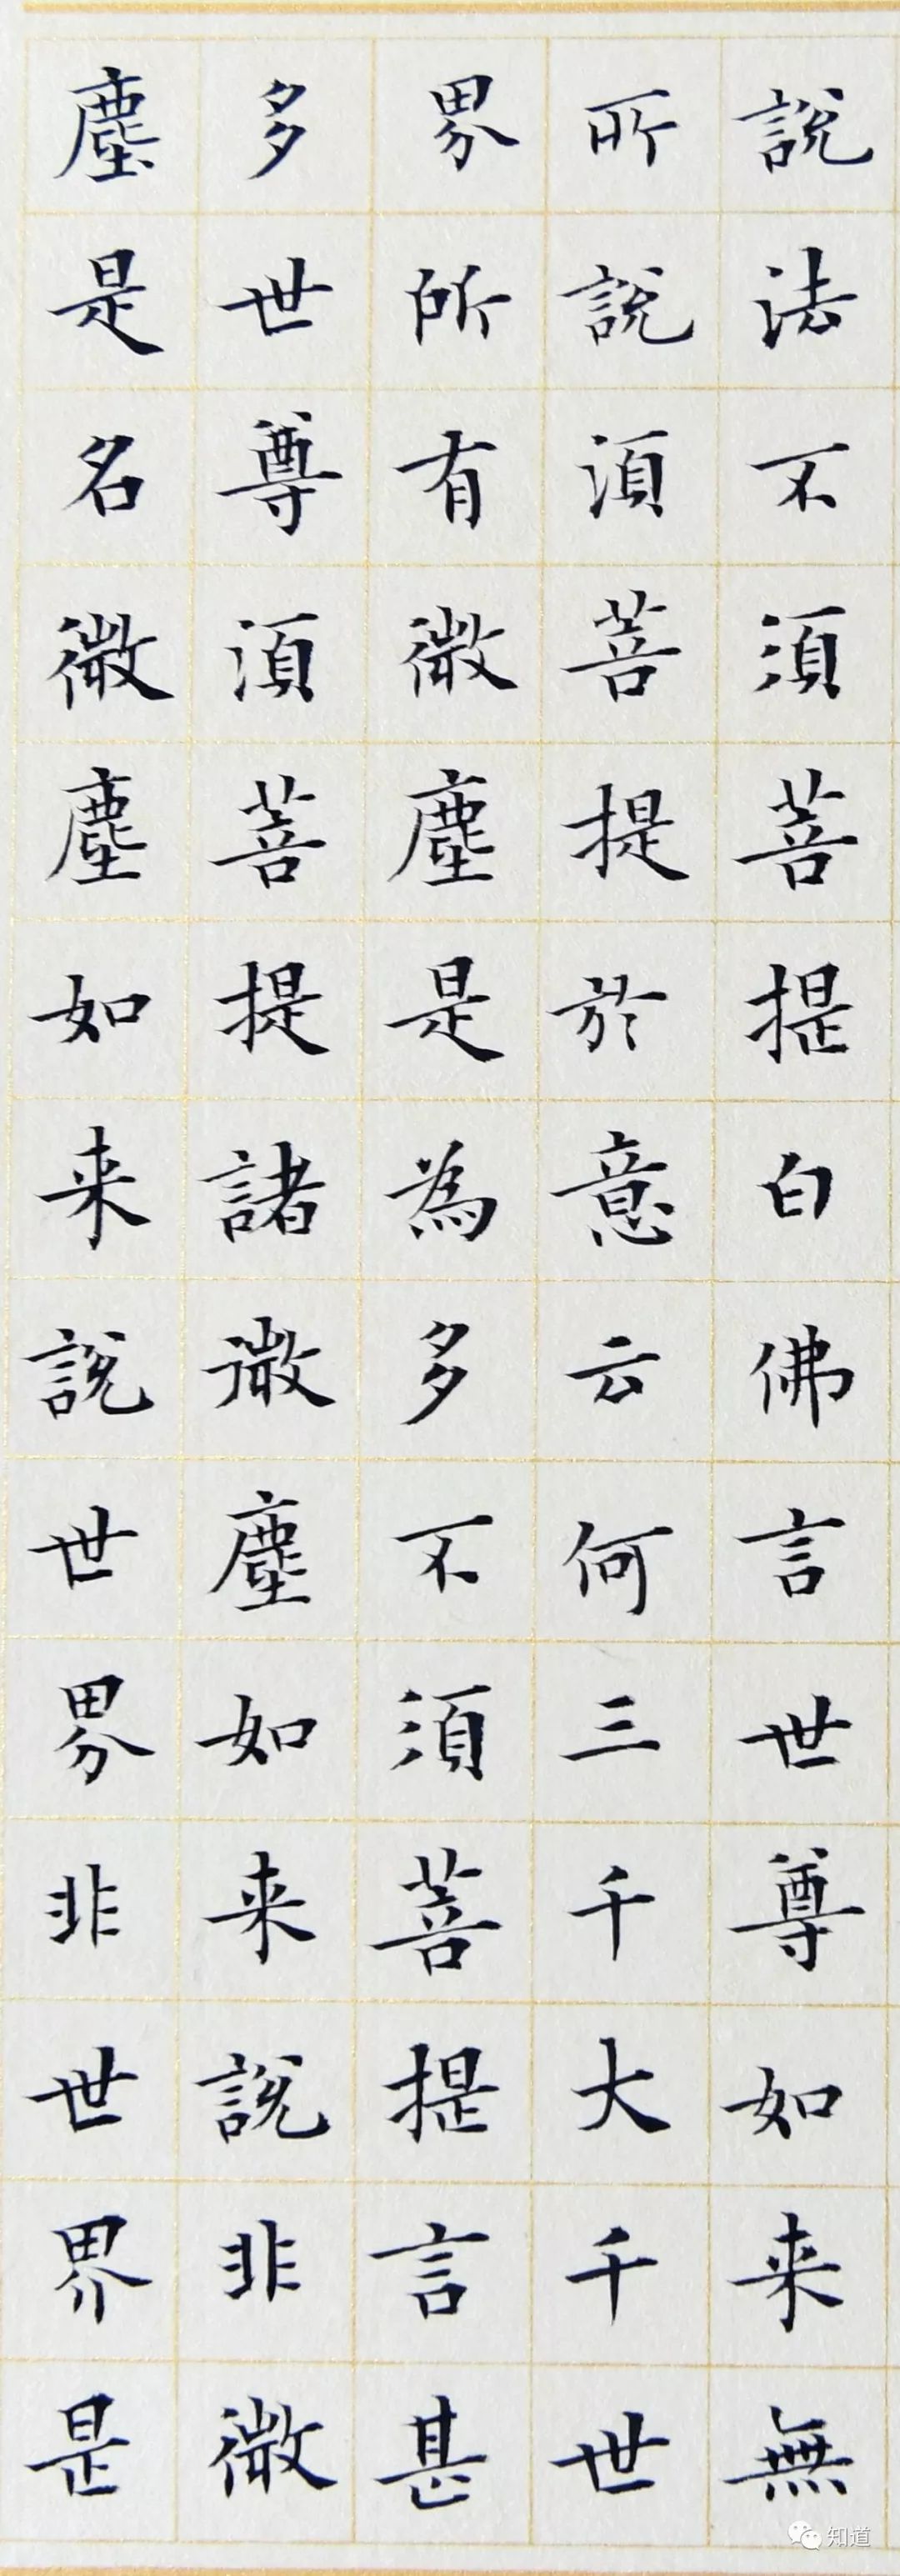 說法不須菩提白佛言世尊如来無
所說須菩提於意云何三千大千世
界所有微塵是為多不須菩提言甚
多世尊須菩提諸微塵如来說非微
塵是名微塵如来說世界非世界是
知道